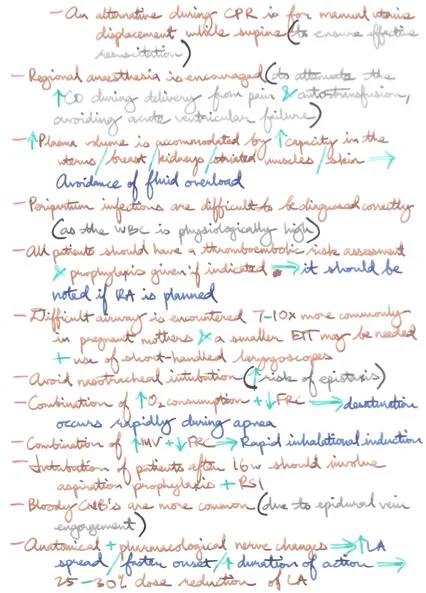 - An alternative during CPR is for manual uterine
displacement while supine (to ensure effective
resuscitation)
- Regional anaesthesia is encouraged (to attenuate the
↑CO during delivery from pain & autotransfusion,
avoiding acute ventricular failure)
- ↑Plasma volume is accommodated by ↑capacity in the
uterus/breast/kidneys/striated muscles/skin ⇒
Avoidance of fluid overload
- Peripartum infections are difficult to be diagnosed correctly
(as the WBC is physiologically high)
- All patients should have a thromboembolic risk assessment
& prophylaxis given if indicated ⇒ it should be
noted if RA is planned
- Difficult airway is encountered 7-10x more commonly
in pregnant mothers & a smaller ETT may be needed
+ use of short-handled laryngoscopes
- Avoid nasotracheal intubation (↑risk of epistaxis)
- Combination of ↑O₂ consumption + ↓FRC ⇒ desaturation
occurs rapidly during apnea
- Combination of ↑MV + ↓FRC ⇒ Rapid inhalational induction
- Intubation of patients after 16w should involve
aspiration prophylaxis + RSI
- Bloody CNB's are more common (due to epidural vein
engorgement)
- Anatomical + pharmacological nerve changes ⇒ ↑LA
spread/faster onset/↑duration of action ⇒
25-30% dose reduction of LA